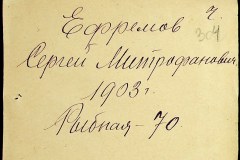 Ефремов
Сергей Митрофанович
1903 г.
Рыбная - 70